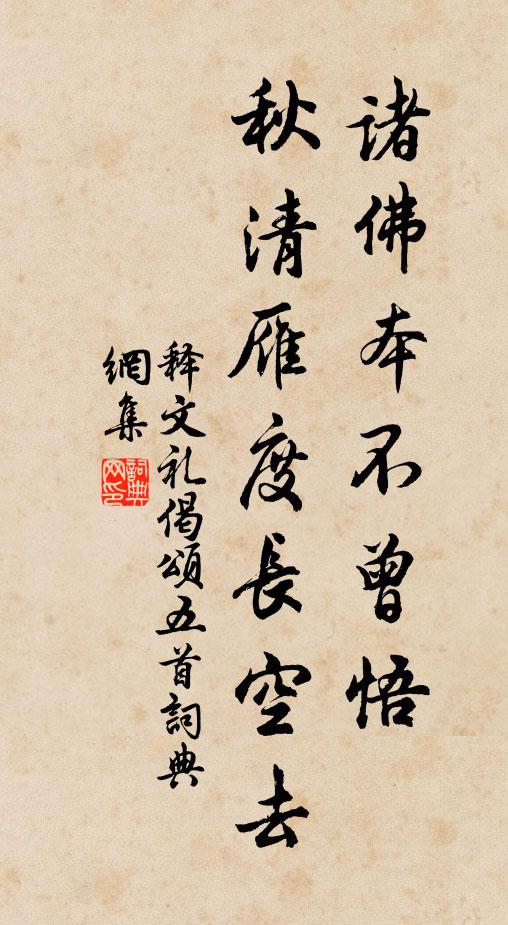 诸佛本不曾悟
秋清雁度長空去
释文礼偈頌五首詞典
網集
詞典网印